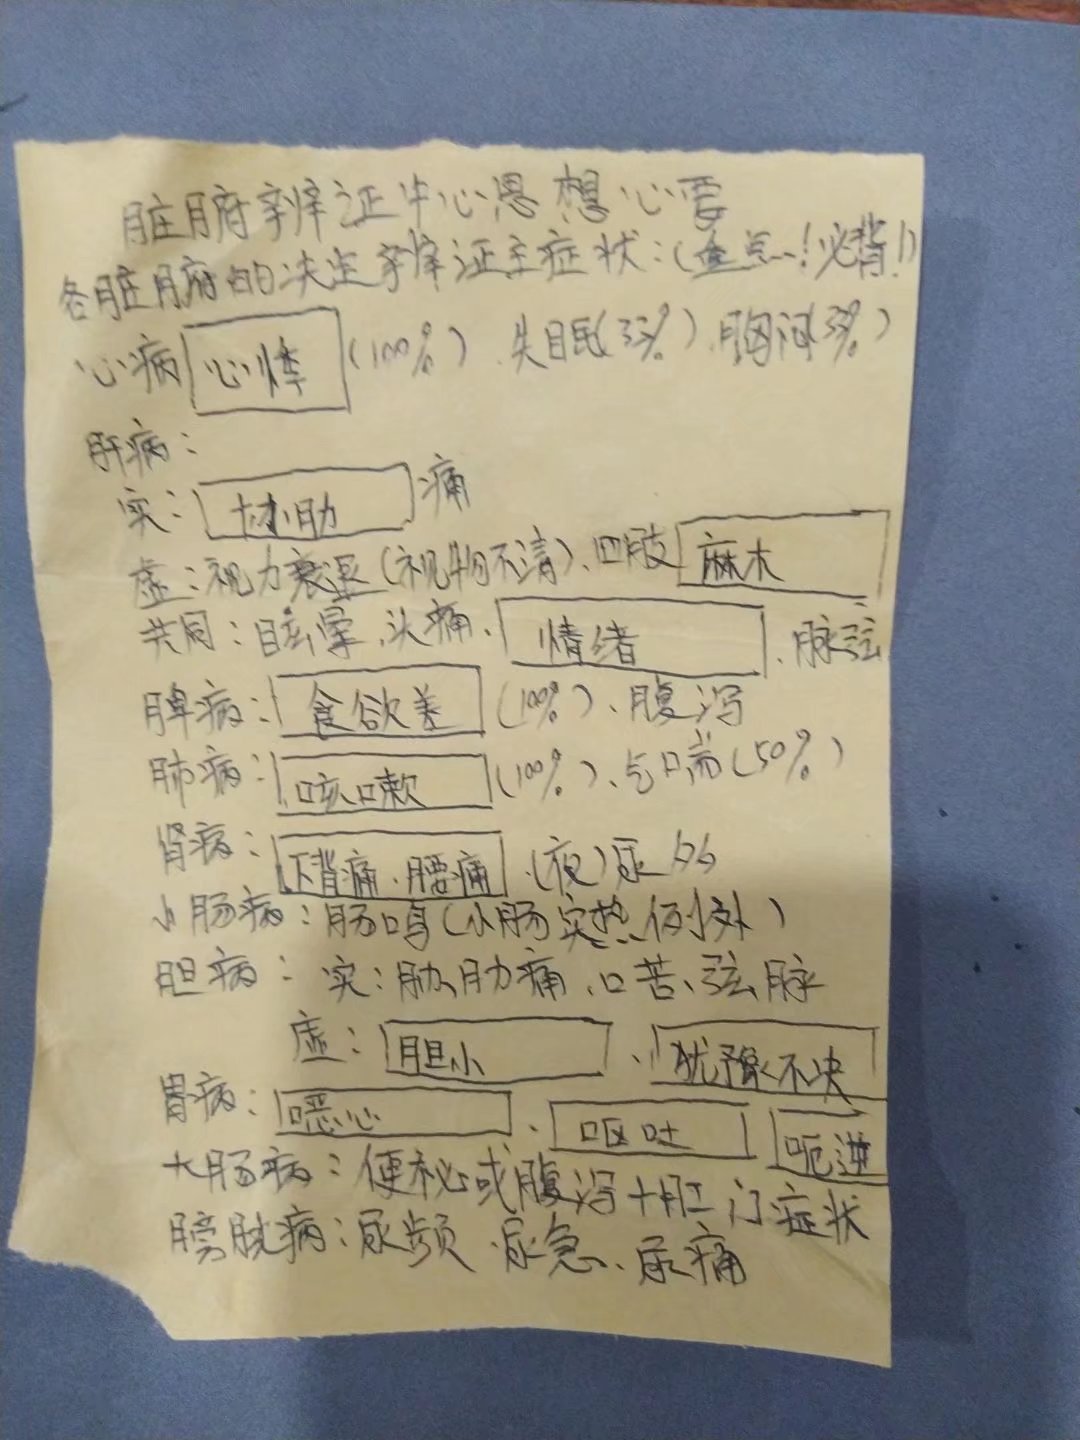 脏腑辨证中心思想心要
各脏腑的决定辨证主症状:(重点!必背!)
心病 心悸 (100%)、失眠(33%)、胸闷(33%)
肝病:
实: 胁肋 痛
虚:视力衰退(视物不清)、四肢 麻木
共同:目眩晕、头痛、 情绪 、脉弦
脾病: 食欲差 (100%)、腹泻
肺病: 咳嗽 (100%)、气喘(50%)
肾病: 下背痛、腰痛 、(夜)尿多
小肠病:肠鸣(小肠实热例外)
胆病:实:胁肋痛、口苦、弦脉
虚: 胆小 、 犹豫不决
胃病: 噁心 、 呕吐 呃逆
大肠病:便秘或腹泻+肛门症状
膀胱病:尿频、尿急、尿痛